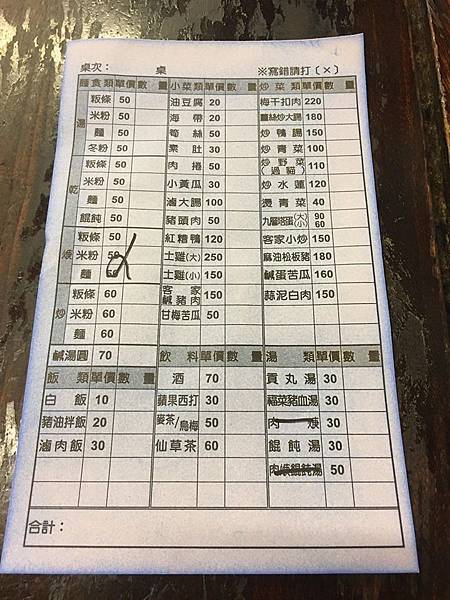 桌次： 桌 ※寫錯請打（×）
麵食類 單價 數量 小菜類 單價 數量 炒菜類 單價 數量
湯 粄條 50 油豆腐 20 梅干扣肉 220
米粉 50 海帶 20 薑絲炒大腸 180
麵 50 筍絲 50 炒鴨腸 150
冬粉 50 素肚 30 炒青菜 100
乾 粄條 50 肉捲 50 炒野菜（過貓） 110
米粉 50 小黃瓜 30 炒水蓮 120
麵 50 滷大腸 100 燙青菜 40
餛飩 50 豬頭肉 50 九層塔蛋(大)(小) 90 60
焿 粄條 50 紅糟鴨 120 客家小炒 150
米粉 50 土雞(大) 250 麻油松板豬 180
麵 50 土雞(小) 150 鹹蛋苦瓜 160
炒 粄條 60 客家鹹豬肉 150 蒜泥白肉 150
米粉 60 甘梅苦瓜 50
麵 60
鹹湯圓 70 飲料 單價 數量 湯類 單價 數量
飯類 單價 數量 酒 70 貢丸湯 30
白飯 10 蘋果西打 30 福菜豬血湯 30
豬油拌飯 20 麥茶/烏梅 50 肉焿 30
滷肉飯 30 仙草茶 60 餛飩湯 30
肉焿餛飩湯 50
合計：